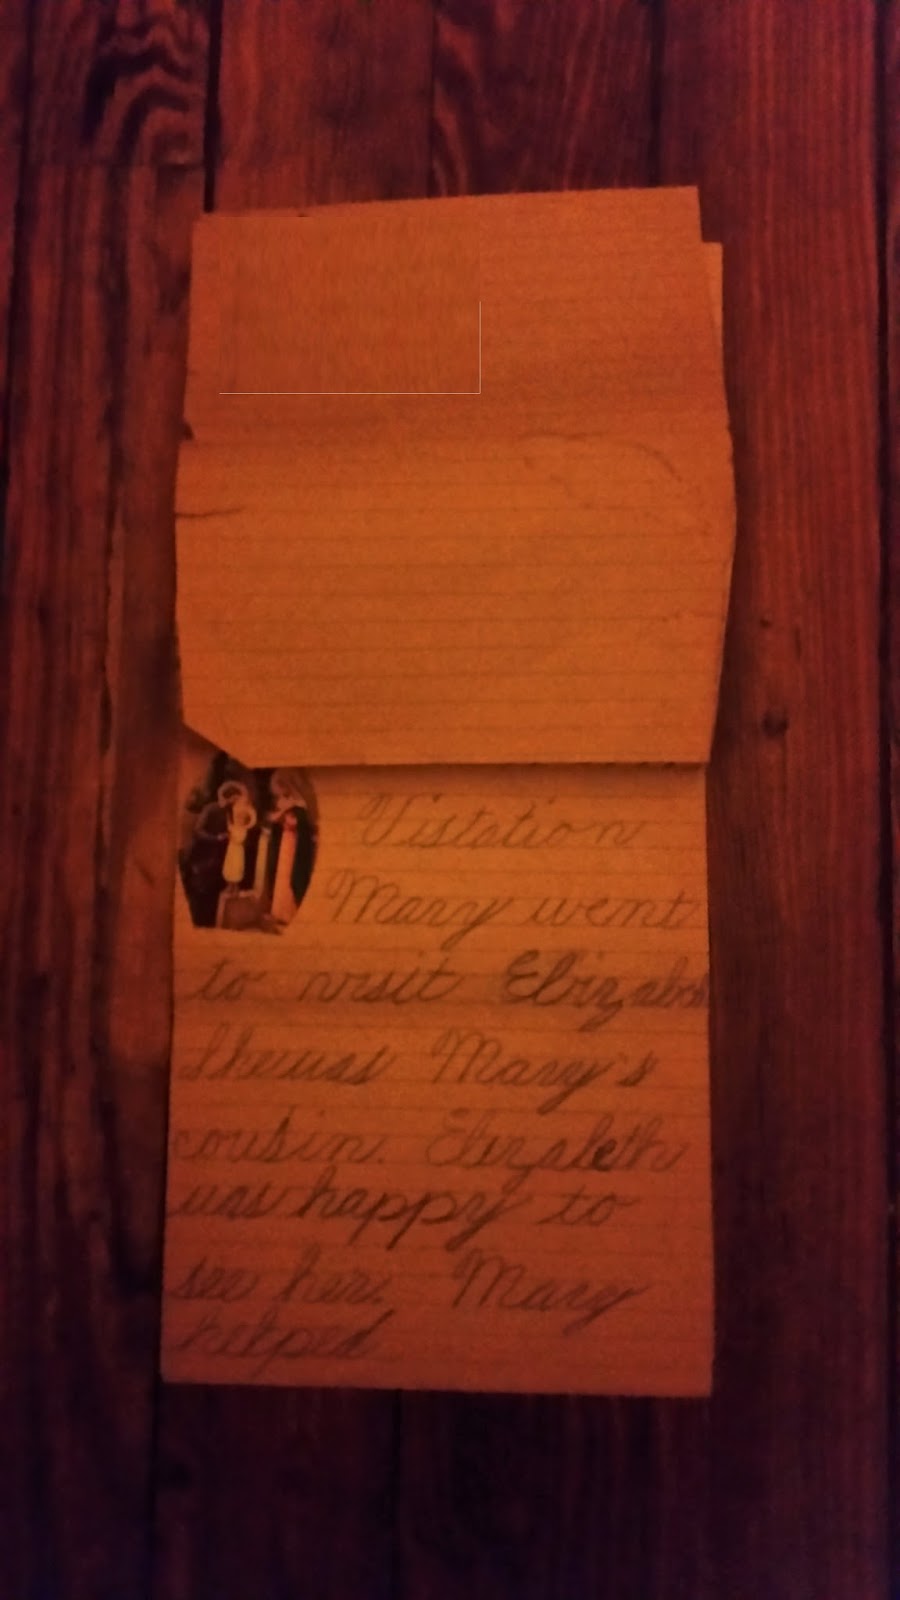 Vistation
Mary went
to visit Elizabeth
She was Mary's
cousin. Elizabeth
was happy to
see her. Mary
helped